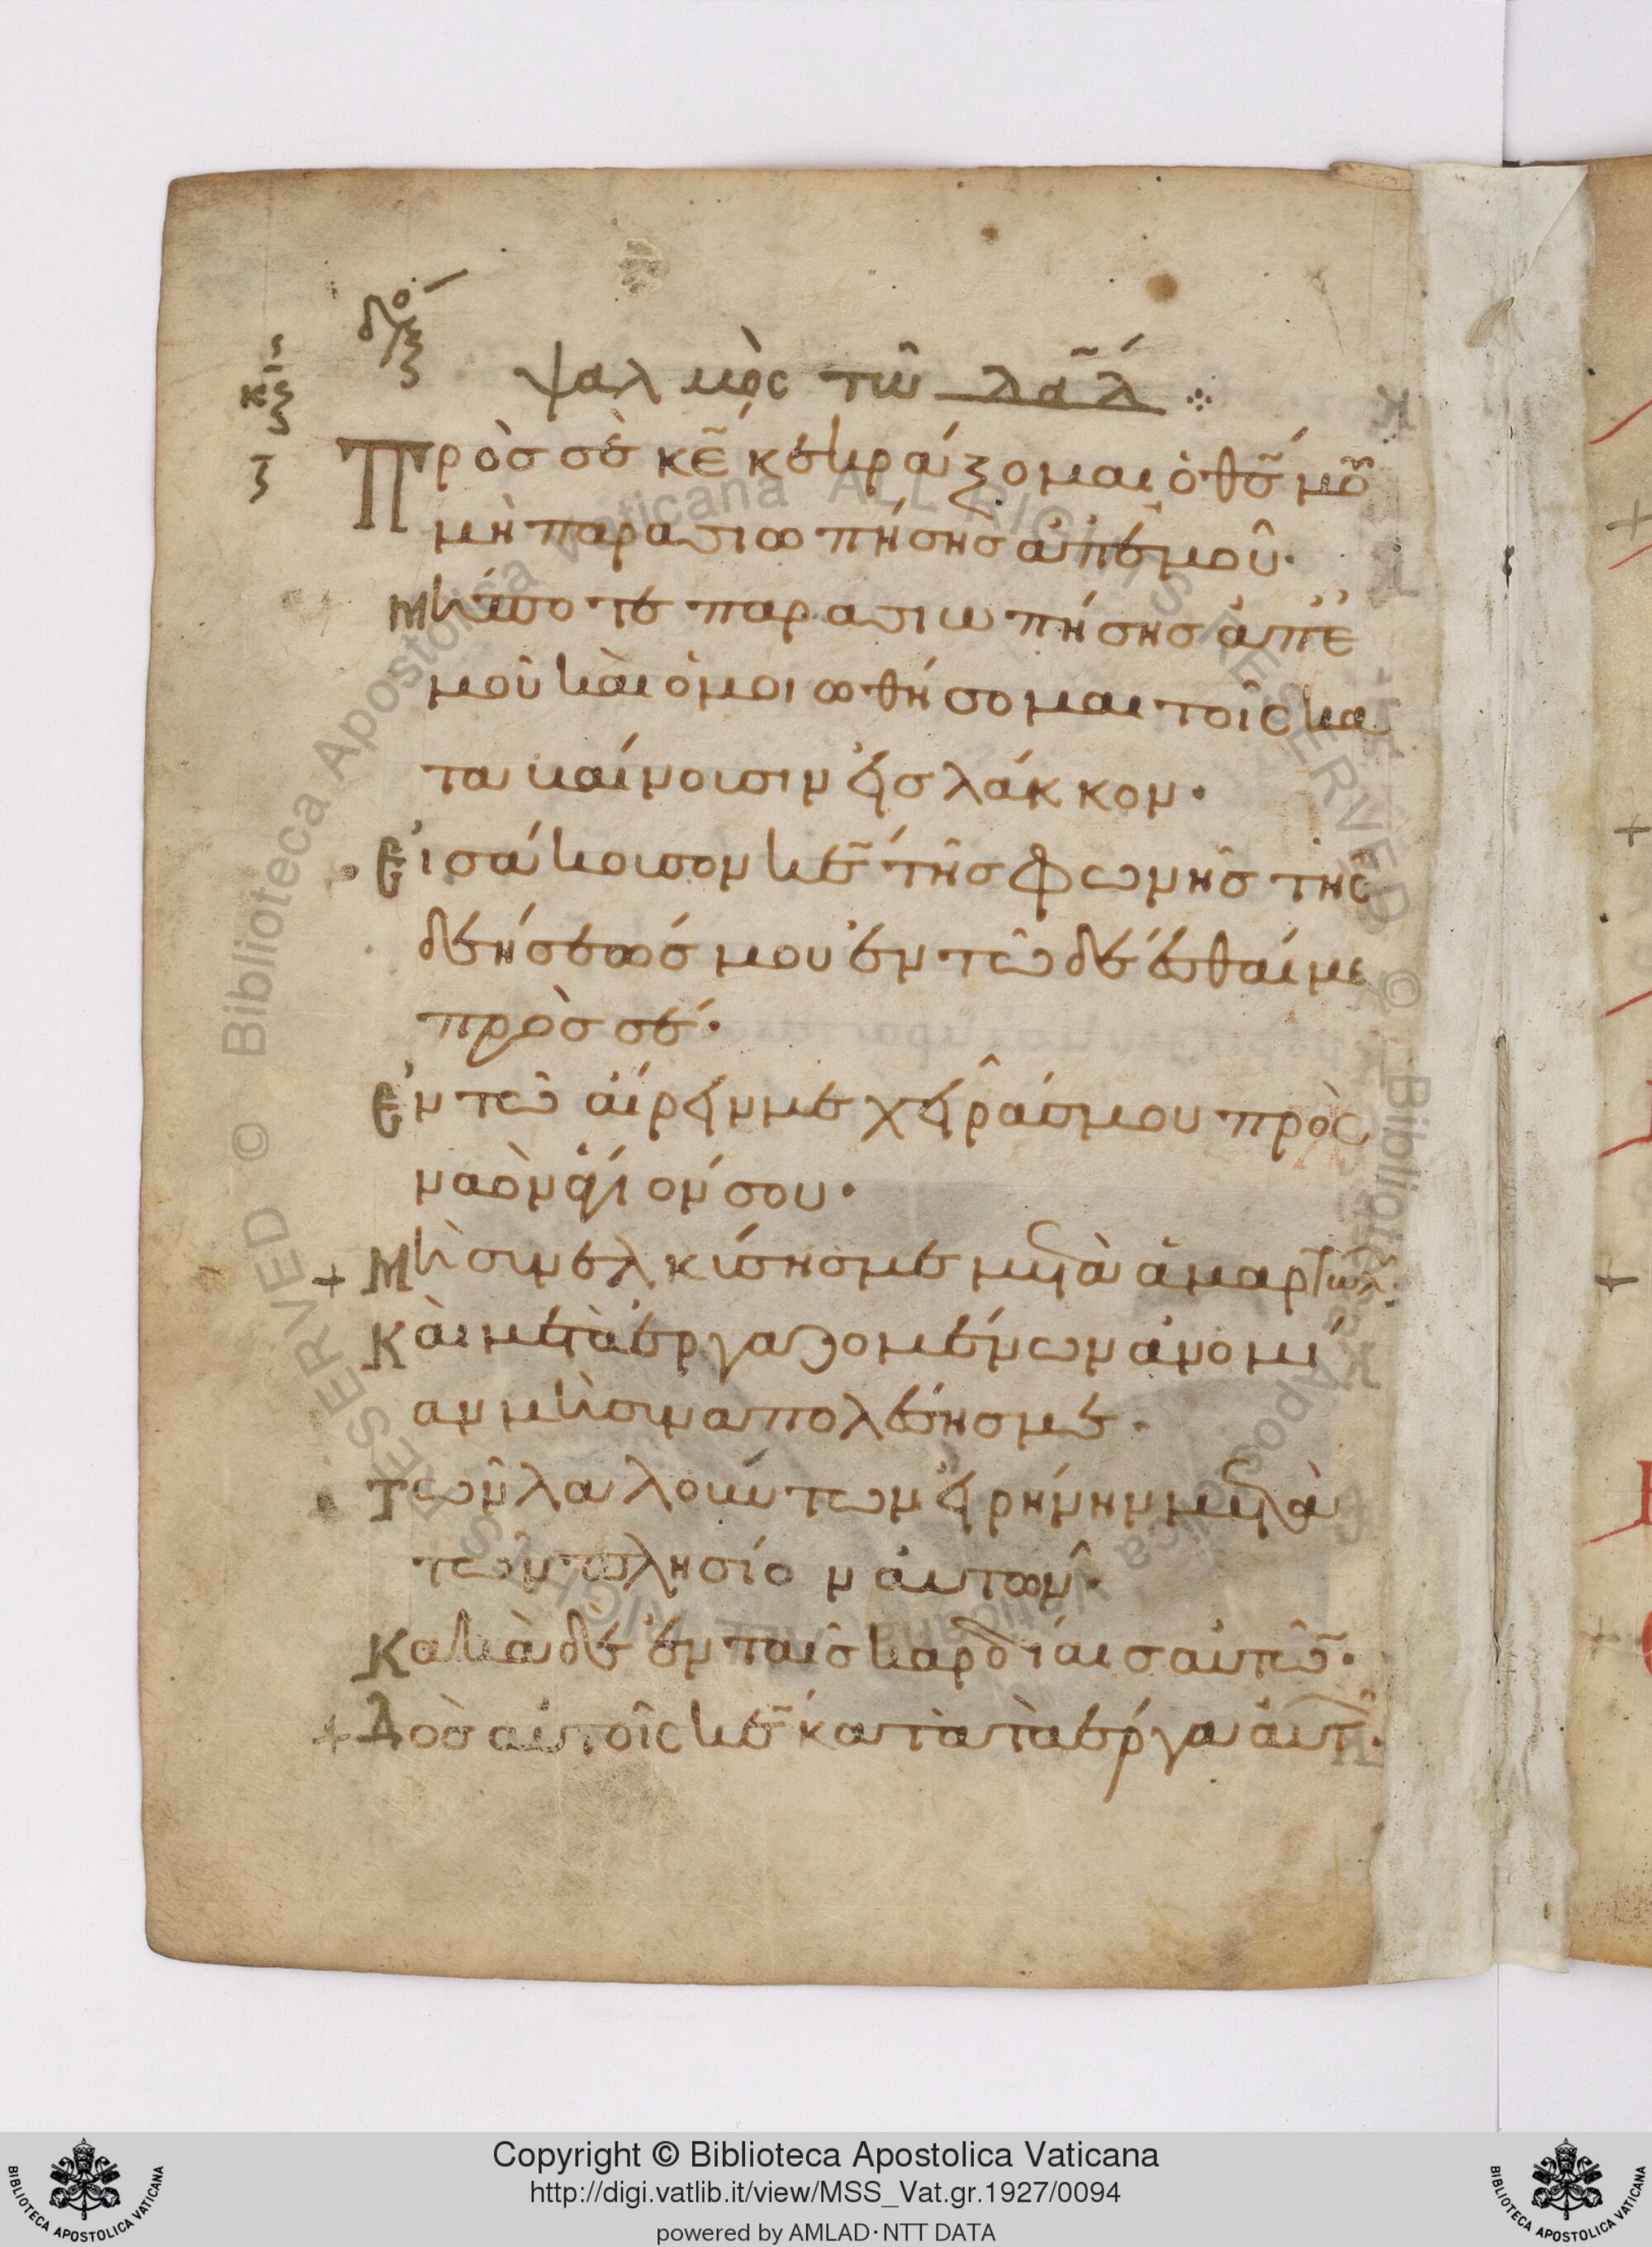 δο
κζ
ψαλμὸς τῶ δᾱδ
Πρὸσ σὲ κε̄ κεκράξομαι ὁ θσ̄ μοῦ
μὴ παρασιωπήσησ ἀπἐμοῦ·
Μήποτε παρασιωπήσησ ἀπἐ
μοῦ καὶ ὁμοιωθήσομαι τοῖς κα
ταβαίνουσιν εἰσ λάκκον·
Εἰσάκουσον κε̄ τῆσ φωνῆσ τῆς
δεήσεωσ μου ἐν τῶ δέεσθαί με
πρὸσ σέ·
Ἐν τῶ αἴρειν με χεῖράσ μου πρὸς
ναὸν ἅγιόν σου·
+ Μὴ συνελκύσησ με μετὰ ἁμαρτωλ
Καὶ μετὰ ἐργαζομένων ἀνομί
αν μὴ συναπολέσησ με·
Τῶν λαλούντων εἰρήνην μετὰ
τῶν πλησίον αὐτῶν·
Κακὰ δὲ ἐν ταῖσ καρδίαισ αὐτῶ̄·
+ Δὸσ αὐτοῖς κε̄ κατὰ τὰ ἔργα αὐτ·
© Biblioteca Apostolica Vaticana ALL RIGHTS RESERVED
© Biblioteca Apostolica Vaticana ALL RIGHTS RESERVED
Copyright © Biblioteca Apostolica Vaticana
http://digi.vatlib.it/view/MSS_Vat.gr.1927/0094
powered by AMLAD·NTT DATA
BIBLIOTECA APOSTOLICA VATICANA
BIBLIOTECA APOSTOLICA VATICANA